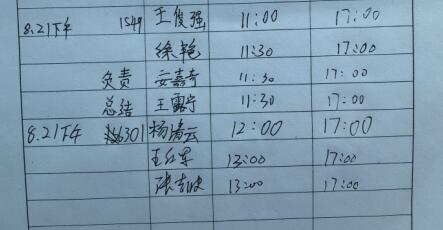 8.21下午 1549 王俊强 11:00 17:00
徐艳 11:30 17:00
负责 安嘉奇 11:30 17:00
总结 王雷宁 11:30 17:00
8.21下午 6301 杨涛云 12:00 17:00
王红军 13:00 17:00
张 13:00 17:00